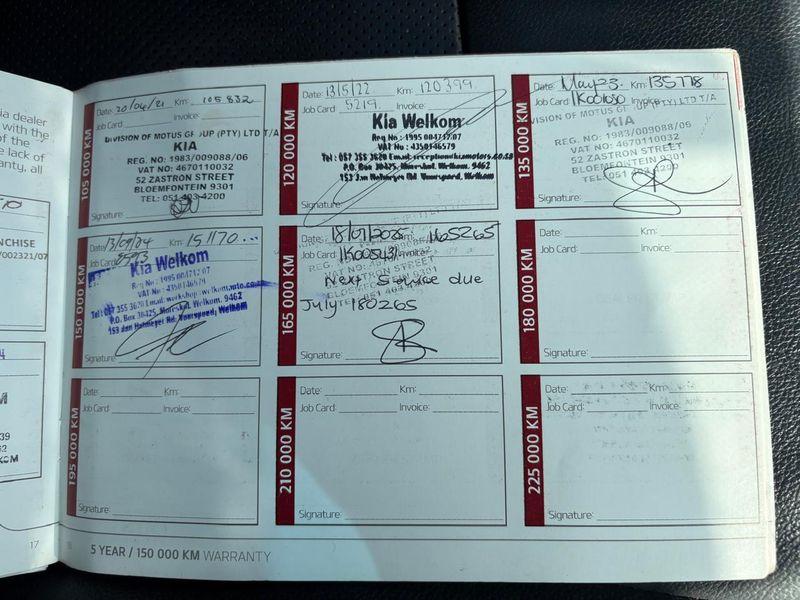 ia dealer
with the
of the
e lack of
anty, all
NCHISE
/002321/07
17
105 000 KM
Date: 20/04/21 Km: 105 832
Job Card: Invoice:
DIVISION OF MOTUS GROUP (PTY) LTD T/A
KIA
REG. NO: 1983/009088/06
VAT NO: 4670110032
52 ZASTRON STREET
BLOEMFONTEIN 9301
TEL: 051 4200
Signature:
120 000 KM
Date: 13/5/22 Km: 120 399
Job Card: 5219. Invoice:
Kia Welkom
Reg No : 1995 004712/07
VAT No : 4350146579
Tel: 057 355 3620 Email: reception@kiamotors.co.za
P.O. Box 30425, Moreskof, Welkom, 9462
153 Jan Hofmeyer Rd. Voorspoed, Welkom
Signature:
135 000 KM
Date: May 23. Km: 135778
Job Card: Invoice:
DIVISION OF MOTUS GROUP (PTY) LTD T/A
KIA
REG. NO: 1983/009088/06
VAT NO: 4670110032
52 ZASTRON STREET
BLOEMFONTEIN 9301
TEL: 051 4200
Signature:
150 000 KM
Date: 13/09/24 Km: 151170
Job Card: Invoice:
Kia Welkom
Reg No : 1995 004712/07
VAT No : 4350146579
P.O. Box 30425, Welkom, 9462
153 Jan Hofmeyer Rd. Voorspoed, Welkom
Signature:
165 000 KM
Date: 18/07/2025 Km: 165265
Job Card: Invoice:
Next Service due
July 180265
Signature:
180 000 KM
Date: Km:
Job Card: Invoice:
Signature:
195 000 KM
Date: Km:
Job Card: Invoice:
Signature:
210 000 KM
Date: Km:
Job Card: Invoice:
Signature:
225 000 KM
Date: Km:
Job Card: Invoice:
Signature:
5 YEAR / 150 000 KM WARRANTY